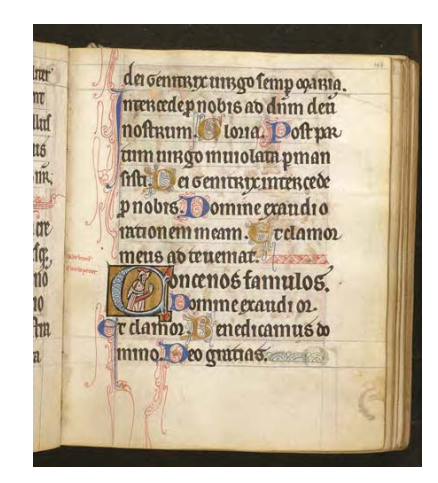 dei genitrix uirgo semp maria.
Intercede p nobis ad dūm deū
nostrum. Gloria. Post par
tum uirgo inuiolata pman
sisti. Dei genitrix intercede
p nobis. Domine exaudi o
rationem meam. Et clamor
meus ad te ueniat.
Concenos famulos.
Domine exaudi or.
Et clamor. Benedicamus do
mino. Deo gratias.